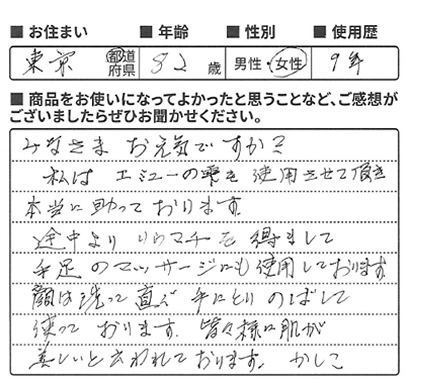 ■ お住まい ■ 年齢 ■ 性別 ■ 使用歴
東京 都道府県 82歳 男性・女性 9年
■ 商品をお使いになってよかったと思うことなど、ご感想が
ございましたらぜひお聞かせください。
みなさま お元気ですか?
私は エミューの雫を 使用させて頂き
本当に助っております。
途中より リウマチを 得まして
手足 のマッサージにも使用しております。
顔は洗って直ぐ 手にとり のばして
使って おります。皆々様に肌が
美しいと云われております。 かしこ